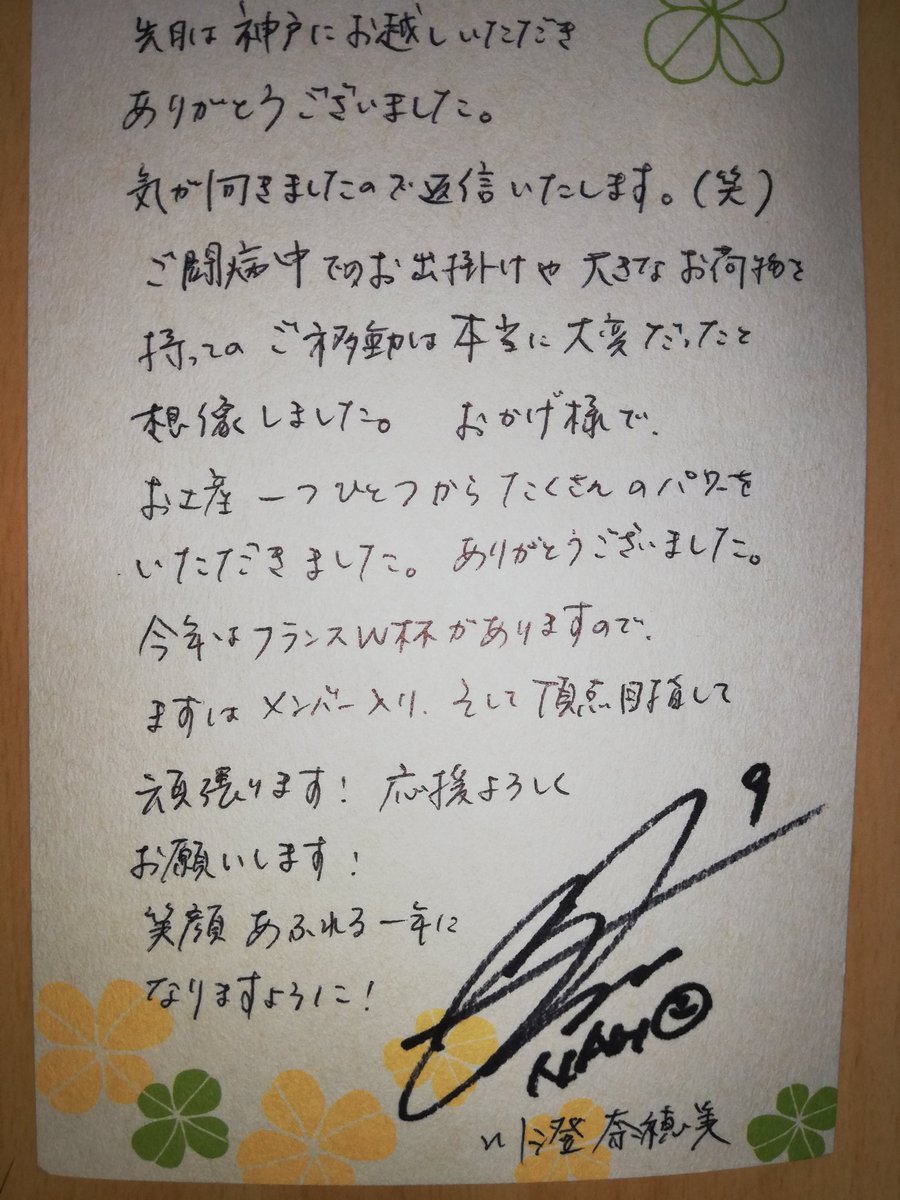 先日は神戸にお越しいただき
ありがとうございました。
気が向きましたので返信いたします。(笑)
ご闘病中でのお出掛けや大きなお荷物を
持ってのご移動は本当に大変だったと
想像しました。 おかげ様で、
お土産一つひとつからたくさんのパワーを
いただきました。ありがとうございました。
今年はフランスW杯がありますので、
まずはメンバー入り、そして頂点目指して
頑張ります! 応援よろしく
お願いします!
笑顔あふれる一年に
なりますように!
9
NAHO
川澄奈穂美